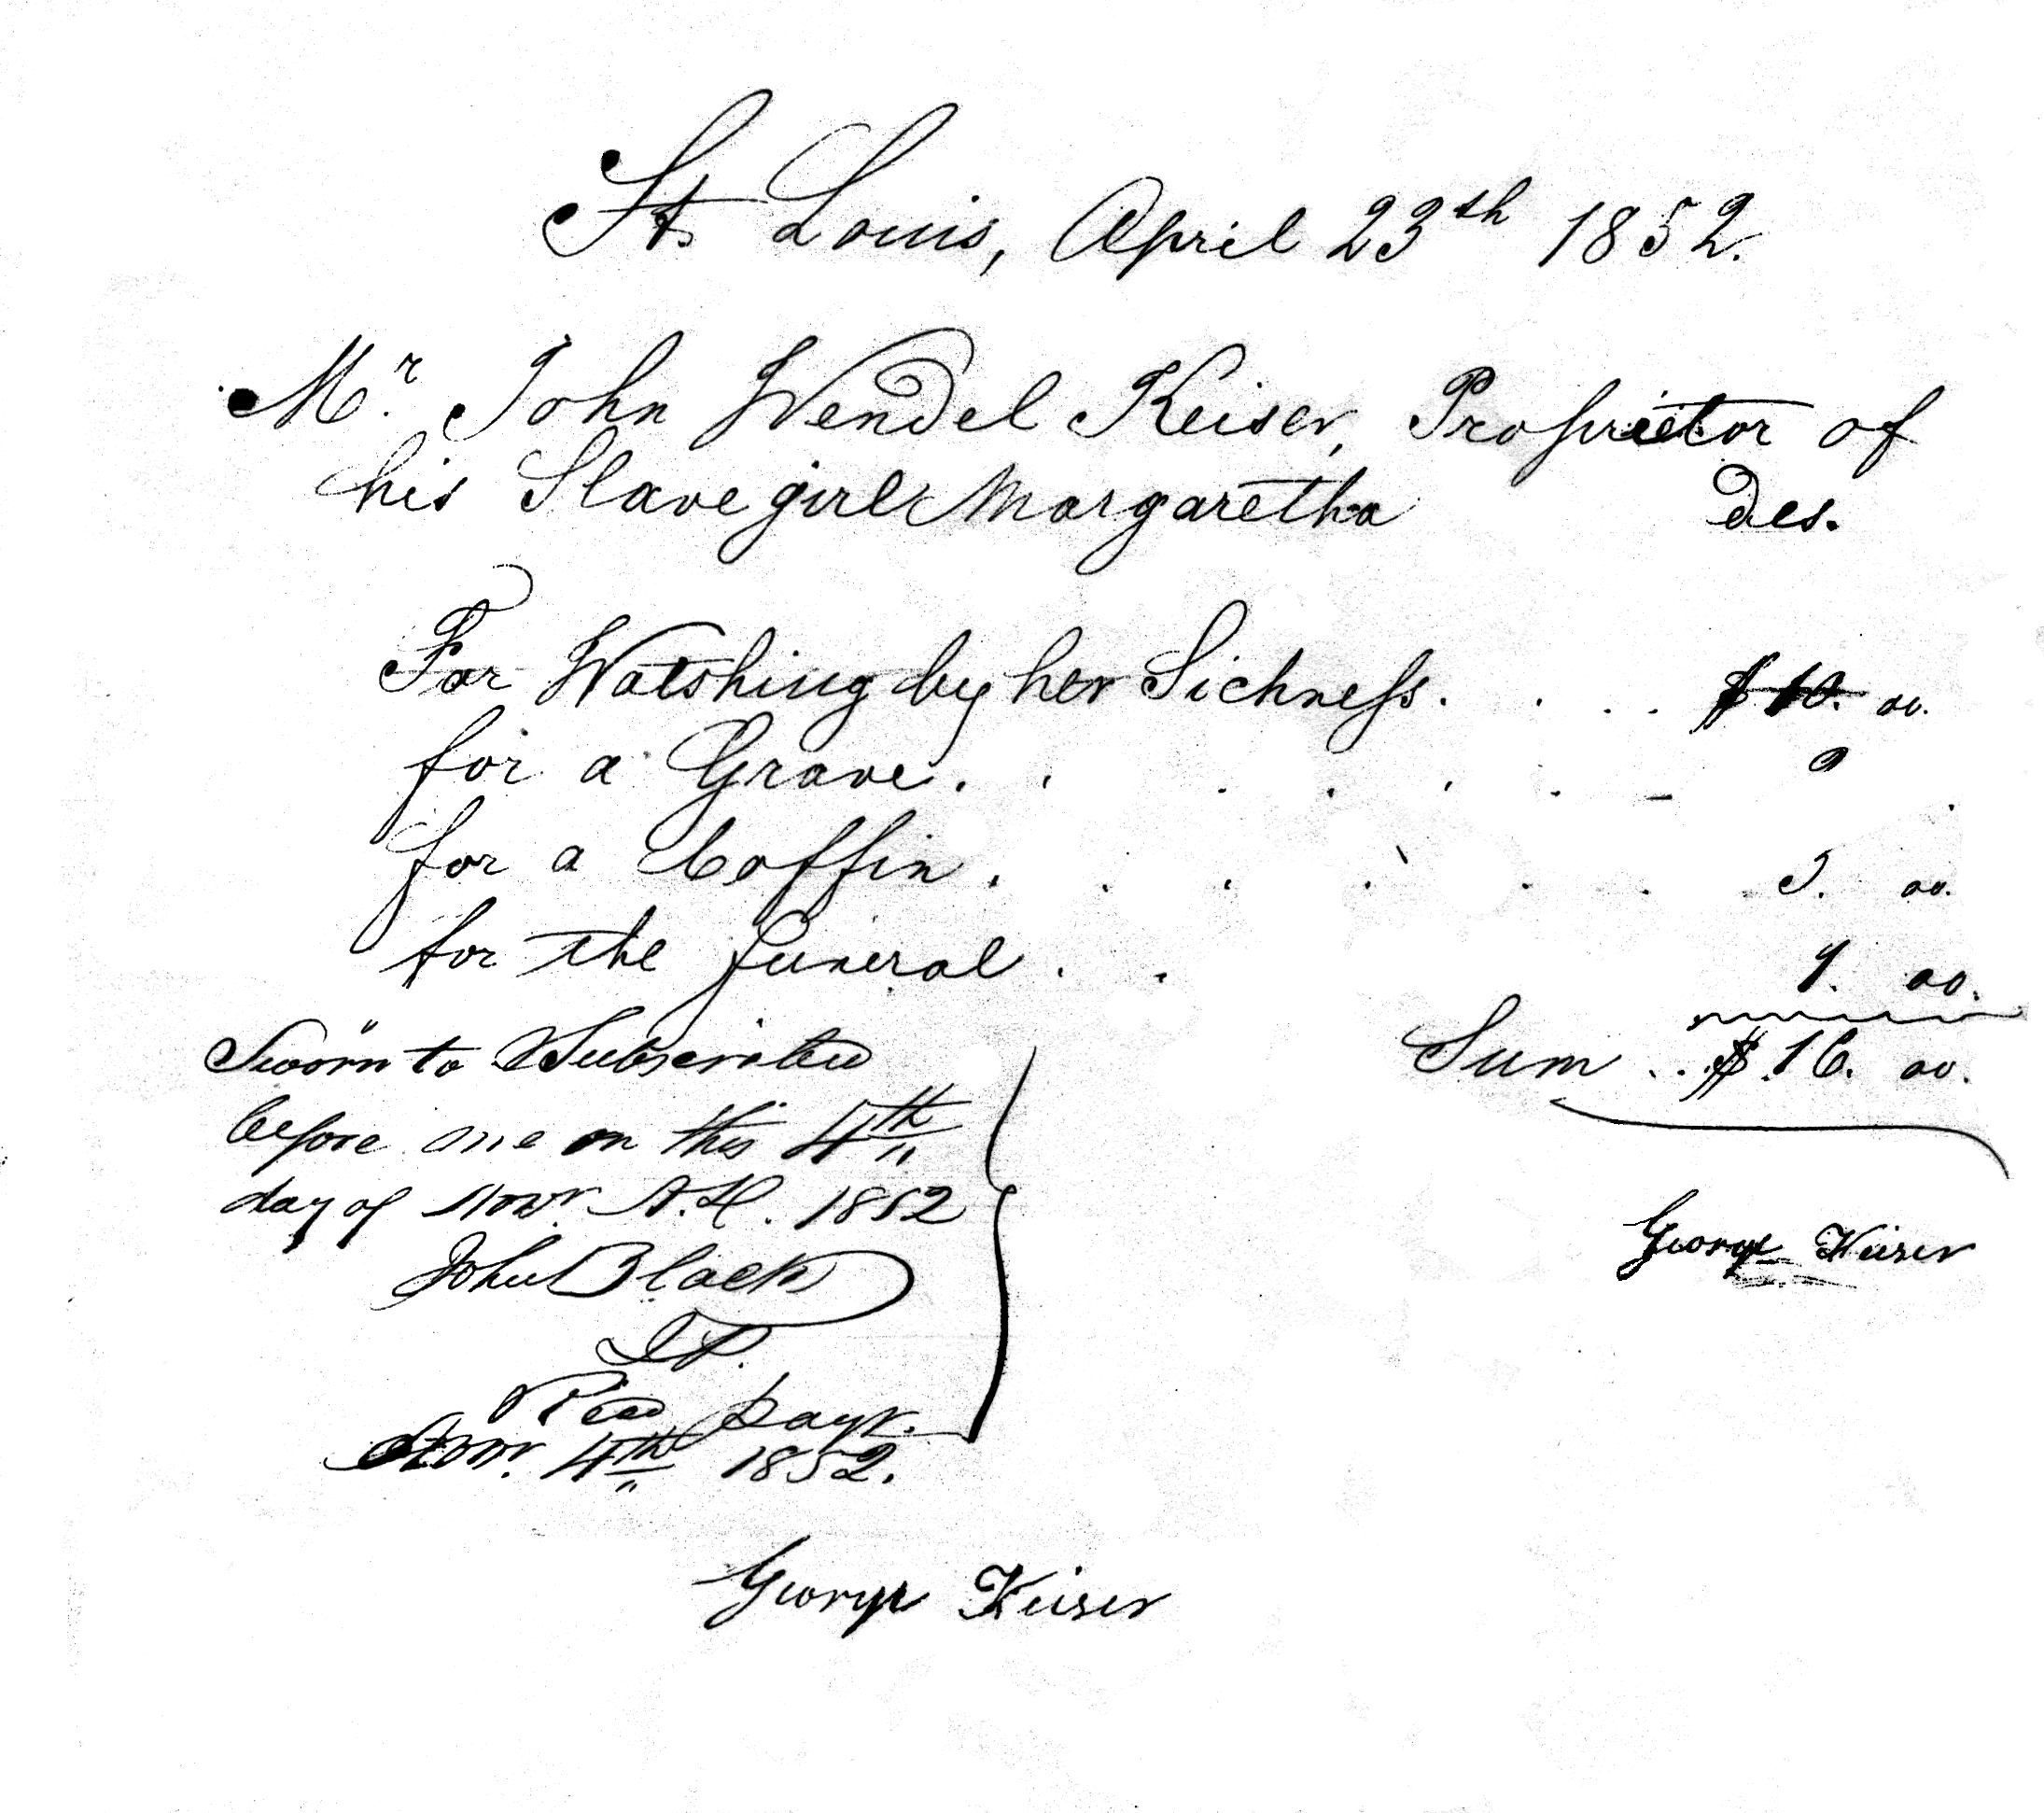 St. Louis, April 23th 1852.
Mr. John Wendel Keiser, Proprietor of
his Slave girl Margaretha des.
For Watshing by her Sickness. . . . $10. 00.
for a Grave. . . . . . –
for a Coffin. . . . . . . 5. 00.
for the funeral . . 1. 00.
Sum . . $.16. 00.
George Keiser
Sworn to & Subscribed
before me on this 4th
day of Novr. A.D. 1852
John Black
J.P.
Recd payt.
Novr. 4th 1852.
George Keiser